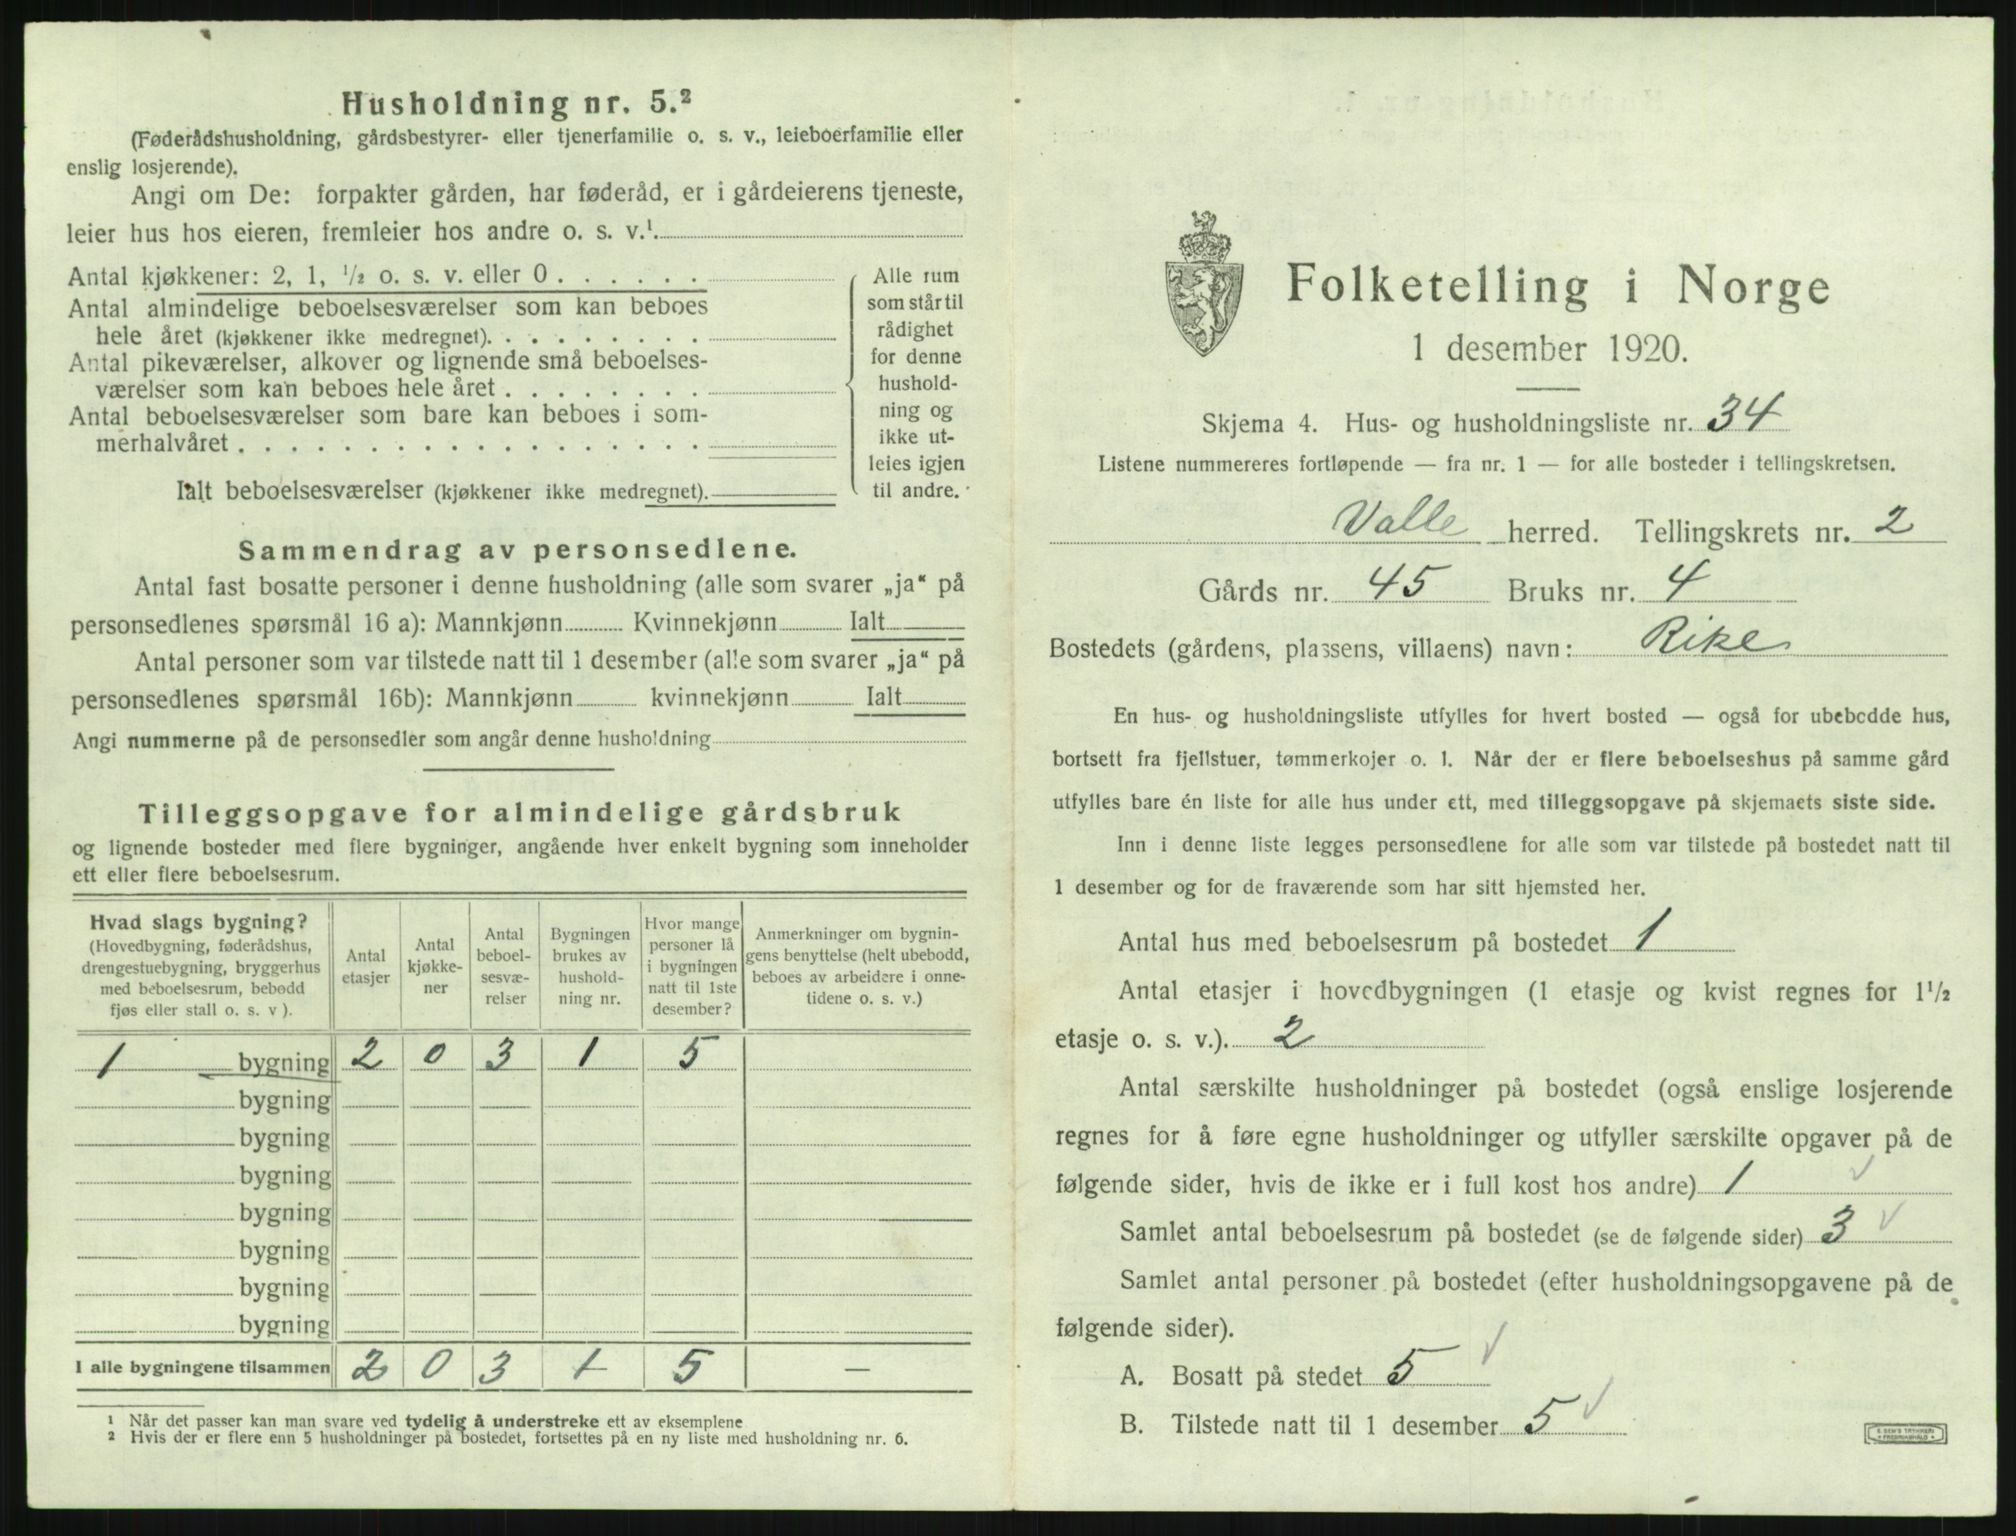 Husholdning nr. 5.²
(Føderådshusholdning, gårdsbestyrer- eller tjenerfamilie o. s. v., leieboerfamilie eller
enslig losjerende).
Angi om De: forpakter gården, har føderåd, er i gårdeierens tjeneste,
leier hus hos eieren, fremleier hos andre o. s. v.¹.
Antal kjøkkener: 2, 1, ½ o. s. v. eller 0 . . . . . .
Antal almindelige beboelsesværelser som kan beboes
hele året (kjøkkener ikke medregnet). . . . . . . . .
Antal pikeværelser, alkover og lignende små beboelses-
værelser som kan beboes hele året . . . . . . . .
Antal beboelsesværelser som bare kan beboes i som-
merhalvåret . . . . . . . . . . . . . . . . . .
Ialt beboelsesværelser (kjøkkener ikke medregnet).
Alle rum
som står til
rådighet
for denne
hushold-
ning og
ikke ut-
leies igjen
til andre.
Sammendrag av personsedlene.
Antal fast bosatte personer i denne husholdning (alle som svarer „ja“ på
personsedlenes spørsmål 16 a): Mannkjønn Kvinnekjønn Ialt
Antal personer som var tilstede natt til 1 desember (alle som svarer „ja“ på
personsedlenes spørsmål 16b): Mannkjønn kvinnekjønn Ialt
Angi nummerne på de personsedler som angår denne husholdning
Tilleggsopgave for almindelige gårdsbruk
og lignende bosteder med flere bygninger, angående hver enkelt bygning som inneholder
ett eller flere beboelsesrum.
Hvad slags bygning?
(Hovedbygning, føderådshus,
drengestuebygning, bryggerhus
med beboelsesrum, bebodd
fjøs eller stall o. s. v ).
Antal
etasjer
Antal
kjøkke-
ner
Antal
beboel-
sesvæ-
relser
Bygningen
brukes av
hushold-
ning nr.
Hvor mange
personer lå
i bygningen
natt til 1ste
desember?
Anmerkninger om bygnin-
gens benyttelse (helt ubebodd,
beboes av arbeidere i onne-
tidene o. s. v.)
1 bygning 2 0 3 1 5
bygning
bygning
bygning
bygning
bygning
bygning
bygning
I alle bygningene tilsammen 2 0 3 + 5 —
¹ Når det passer kan man svare ved tydelig å understreke ett av eksemplene
² Hvis der er flere enn 5 husholdninger på bostedet, fortsettes på en ny liste med husholdning nr. 6.
Folketelling i Norge
1 desember 1920.
Skjema 4. Hus- og husholdningsliste nr. 34
Listene nummereres fortløpende — fra nr. 1 — for alle bosteder i tellingskretsen.
Valle herred. Tellingskrets nr. 2
Gårds nr. 45 Bruks nr. 4
Bostedets (gårdens, plassens, villaens) navn: Rike
En hus- og husholdningsliste utfylles for hvert bosted — også for ubebodde hus,
bortsett fra fjellstuer, tømmerkojer o. l. Når der er flere beboelseshus på samme gård
utfylles bare én liste for alle hus under ett, med tilleggsopgave på skjemaets siste side.
Inn i denne liste legges personsedlene for alle som var tilstede på bostedet natt til
1 desember og for de fraværende som har sitt hjemsted her.
Antal hus med beboelsesrum på bostedet 1
Antal etasjer i hovedbygningen (1 etasje og kvist regnes for 1½
etasje o. s. v.). 2
Antal særskilte husholdninger på bostedet (også enslige losjerende
regnes for å føre egne husholdninger og utfyller særskilte opgaver på de
følgende sider, hvis de ikke er i full kost hos andre) 1
Samlet antal beboelsesrum på bostedet (se de følgende sider) 3
Samlet antal personer på bostedet (efter husholdningsopgavene på de
følgende sider).
A. Bosatt på stedet 5
B. Tilstede natt til 1 desember 5
E. SEM'S TRYKKERI
FREDRIKSHALD